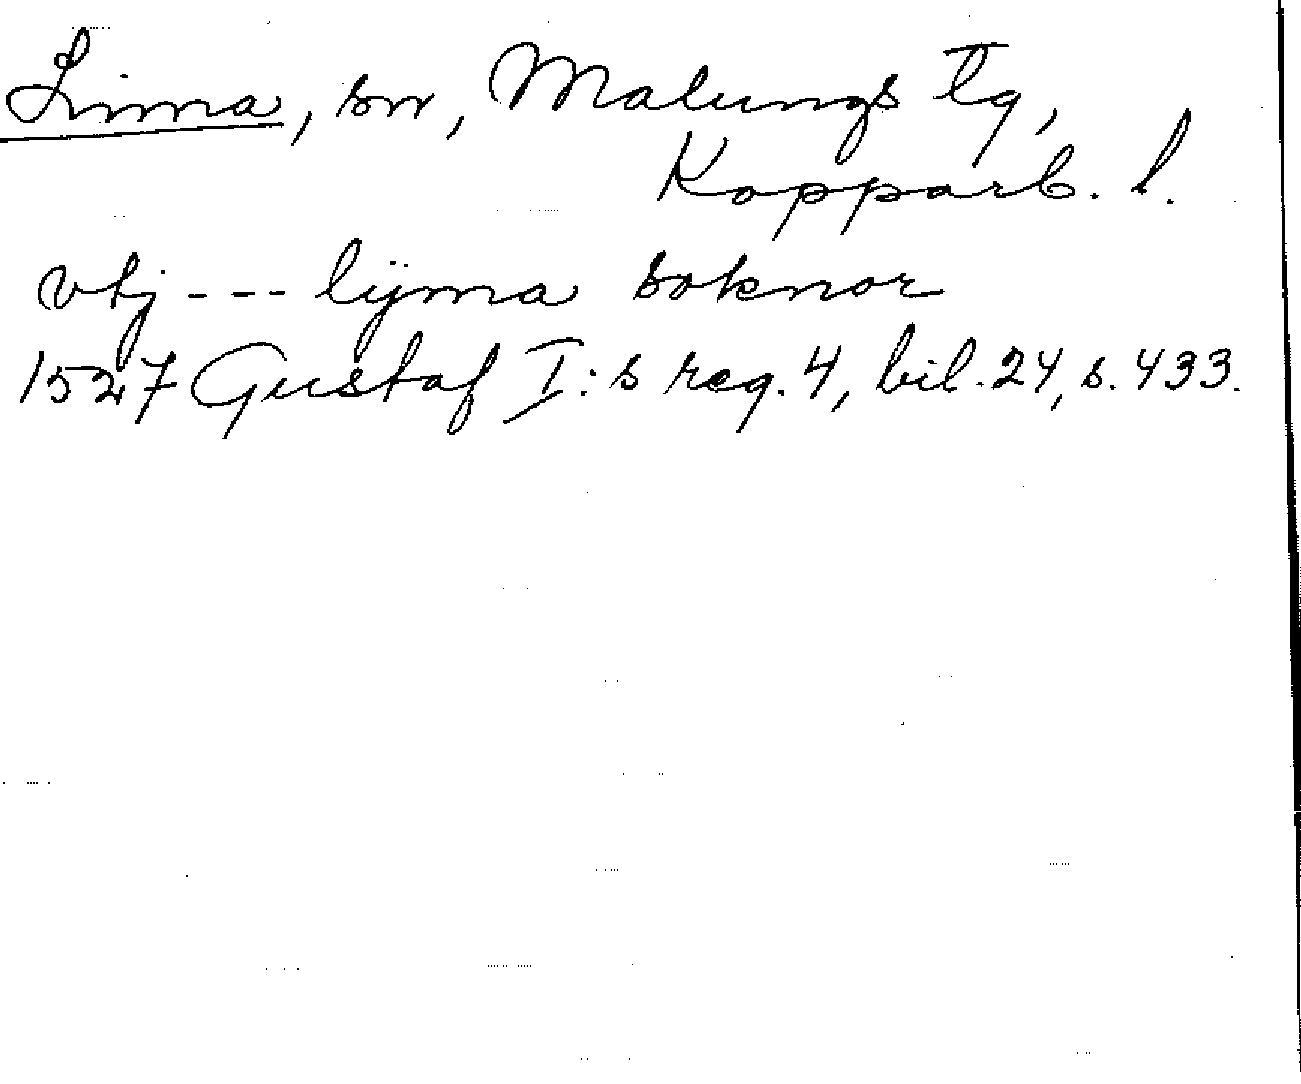 Lima, sn, Malungs tg,
Kopparb. l.
vtj --- lijma soknor
1527 Gustaf I:s reg. 4, bil. 24, s. 433.